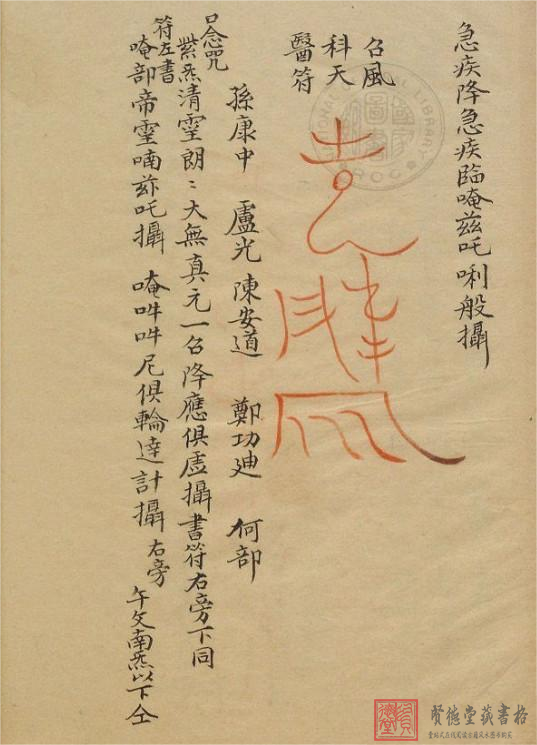 急疾降急疾臨唵茲吒唎般攝
召風
科天
醫符
孫康中　盧光　陳安道　鄭功廸　何部
口念咒
紫炁清霊朗〻大無真元一召降應俱虛攝書符右旁下同
符左書
唵部帝霊喃茲吒攝　唵吽吽尼俱輪達計攝右旁
午文南炁以下仝
賢德堂藏書格